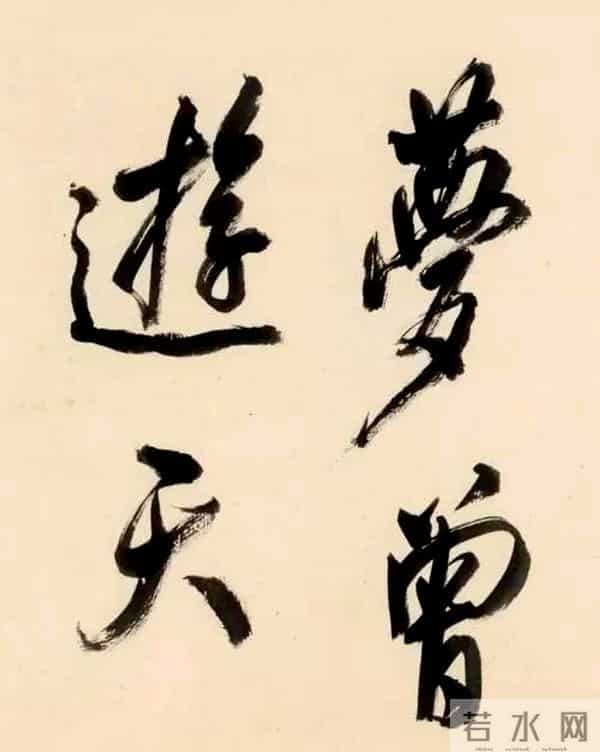 夢曾
遊天
若水网